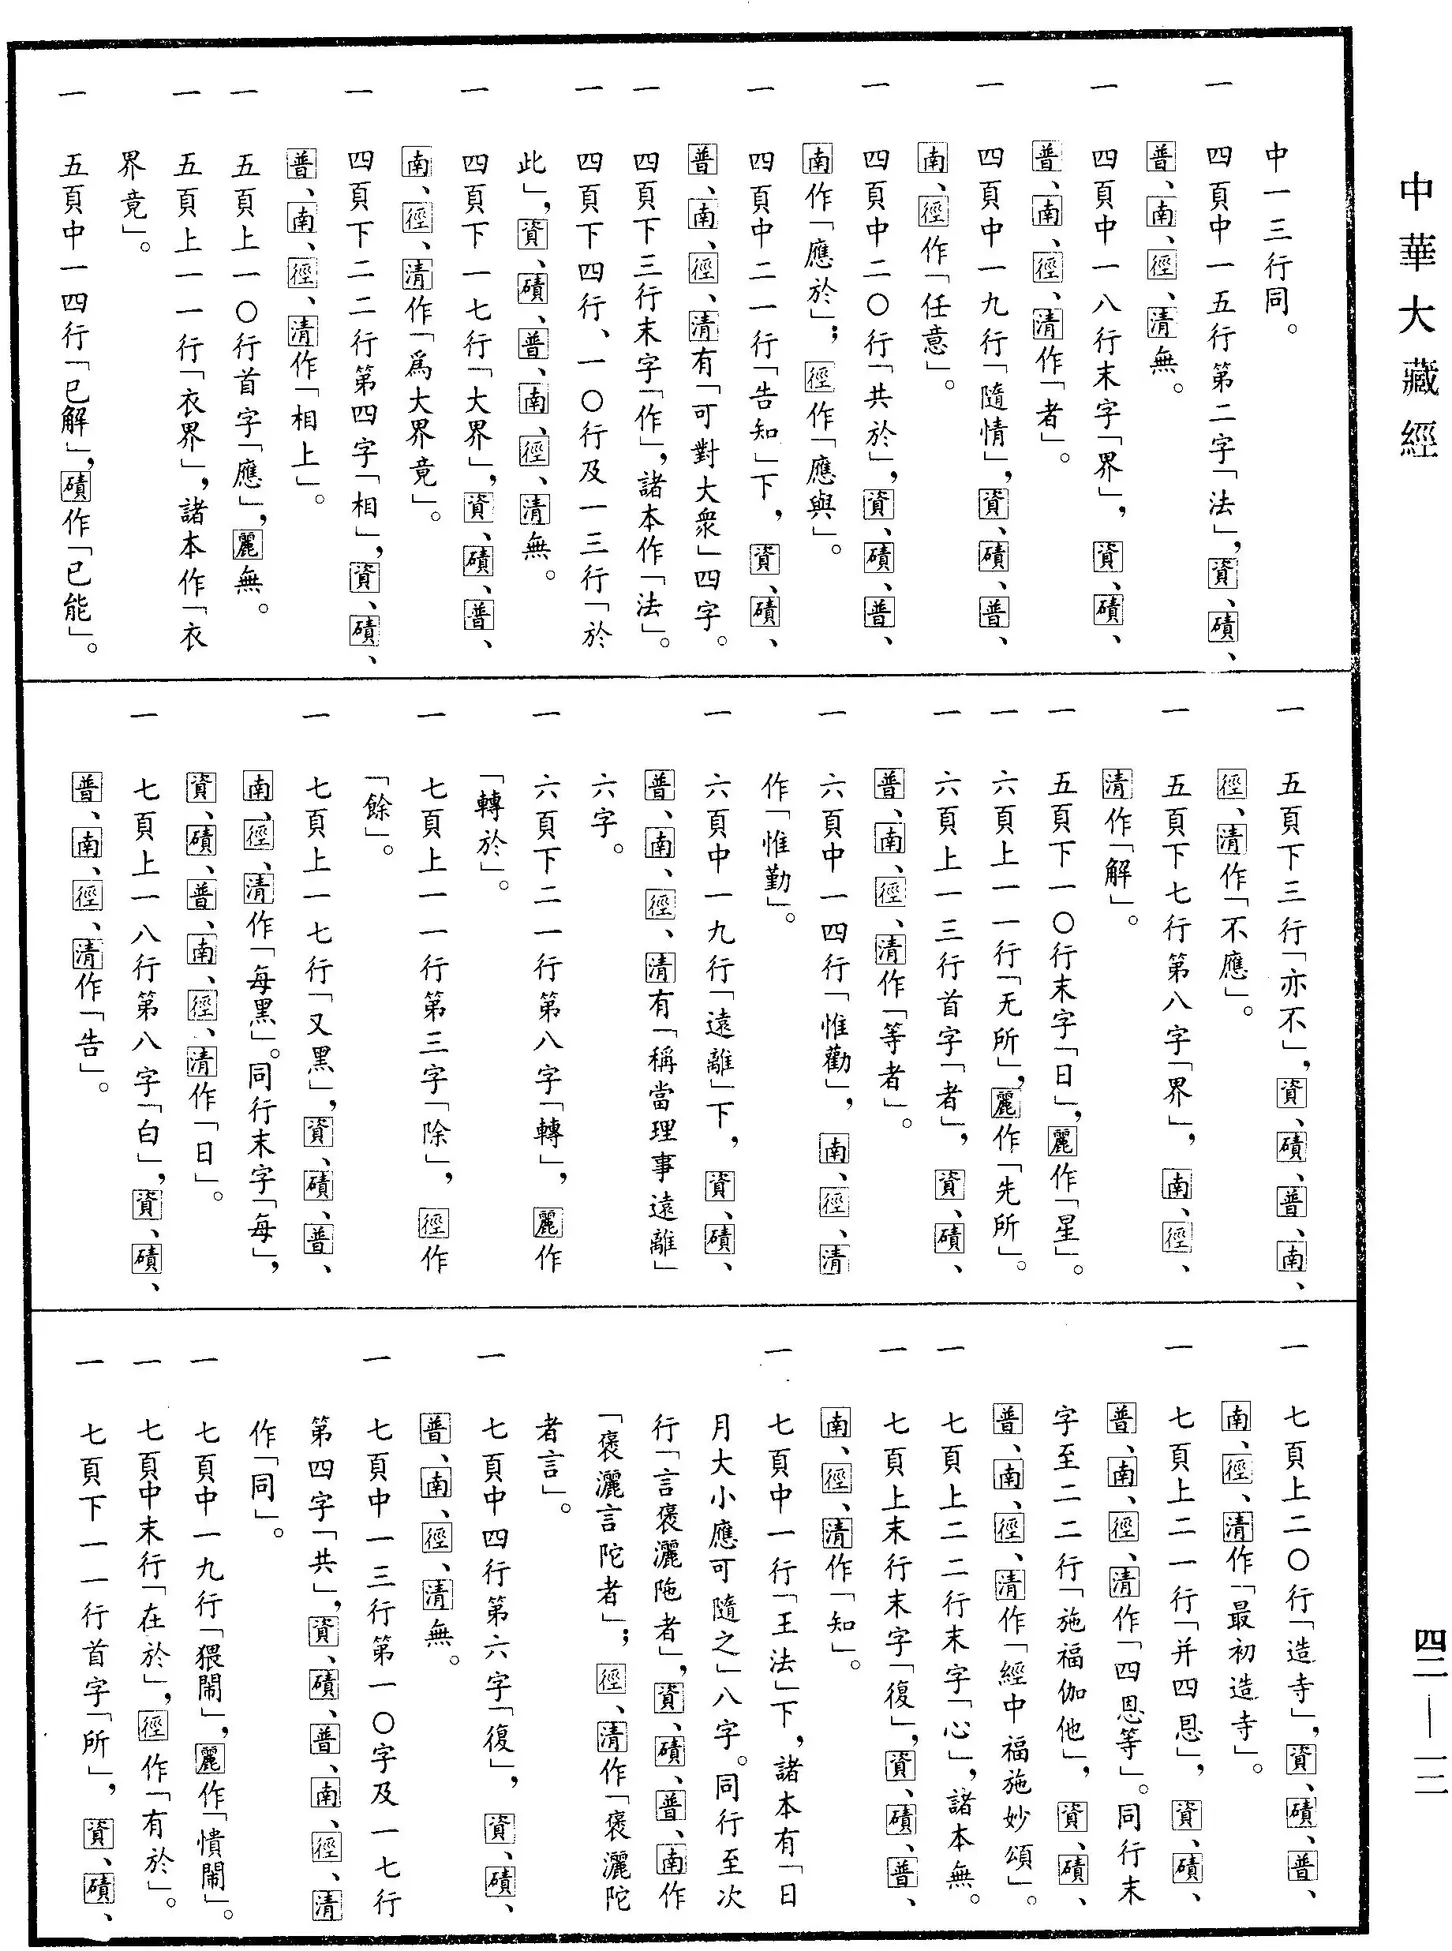 中華大藏經
中一三行同。
一 四頁中一五行第二字「法」，資、磧、
普、南、徑、清無。
一 四頁中一八行末字「界」，資、磧、
普、南、徑、清作「者」。
一 四頁中一九行「隨情」，資、磧、普、
南、徑作「任意」。
一 四頁中二〇行「共於」，資、磧、普、
南作「應於」；徑作「應與」。
一 四頁中二一行「告知」下，資、磧、
普、南、徑、清有「可對大衆」四字。
一 四頁下三行末字「作」，諸本作「法」。
一 四頁下四行、一〇行及一三行「於
此」，資、磧、普、南、徑、清無。
一 四頁下一七行「大界」，資、磧、普、
南、徑、清作「爲大界竟」。
一 四頁下二二行第四字「相」，資、磧、
普、南、徑、清作「相上」。
一 五頁上一〇行首字「應」，麗無。
一 五頁上一一行「衣界」，諸本作「衣
界竟」。
一 五頁中一四行「已解」，磧作「已能」。
一 五頁下三行「亦不」，資、磧、普、南、
徑、清作「不應」。
一 五頁下七行第八字「界」，南、徑、
清作「解」。
一 五頁下一〇行末字「日」，麗作「星」。
一 六頁上一一行「无所」，麗作「先所」。
一 六頁上一三行首字「者」，資、磧、
普、南、徑、清作「等者」。
一 六頁中一四行「惟勸」，南、徑、清
作「惟勤」。
一 六頁中一九行「遠離」下，資、磧、
普、南、徑、清有「稱當理事遠離」
六字。
一 六頁下二一行第八字「轉」，麗作
「轉於」。
一 七頁上一一行第三字「除」，徑作
「餘」。
一 七頁上一七行「又黑」，資、磧、普、
南、徑、清作「每黑」。同行末字「每」，
資、磧、普、南、徑、清作「日」。
一 七頁上一八行第八字「白」，資、磧、
普、南、徑、清作「告」。
一 七頁上二〇行「造寺」，資、磧、普、
南、徑、清作「最初造寺」。
一 七頁上二一行「并四恩」，資、磧、
普、南、徑、清作「四恩等」。同行末
字至二二行「施福伽他」，資、磧、
普、南、徑、清作「經中福施妙頌」。
一 七頁上二二行末字「心」，諸本無。
一 七頁上末行末字「復」，資、磧、普、
南、徑、清作「知」。
一 七頁中一行「王法」下，諸本有「日
月大小應可隨之」八字。同行至次
行「言褒灑陁者」，資、磧、普、南作
「褒灑言陀者」；徑、清作「褒灑陀
者言」。
一 七頁中四行第六字「復」，資、磧、
普、南、徑、清無。
一 七頁中一三行第一〇字及一七行
第四字「共」，資、磧、普、南、徑、清
作「同」。
一 七頁中一九行「猥閙」，麗作「憒閙」。
一 七頁中末行「在於」，徑作「有於」。
一 七頁下一一行首字「所」，資、磧、
四二—一二